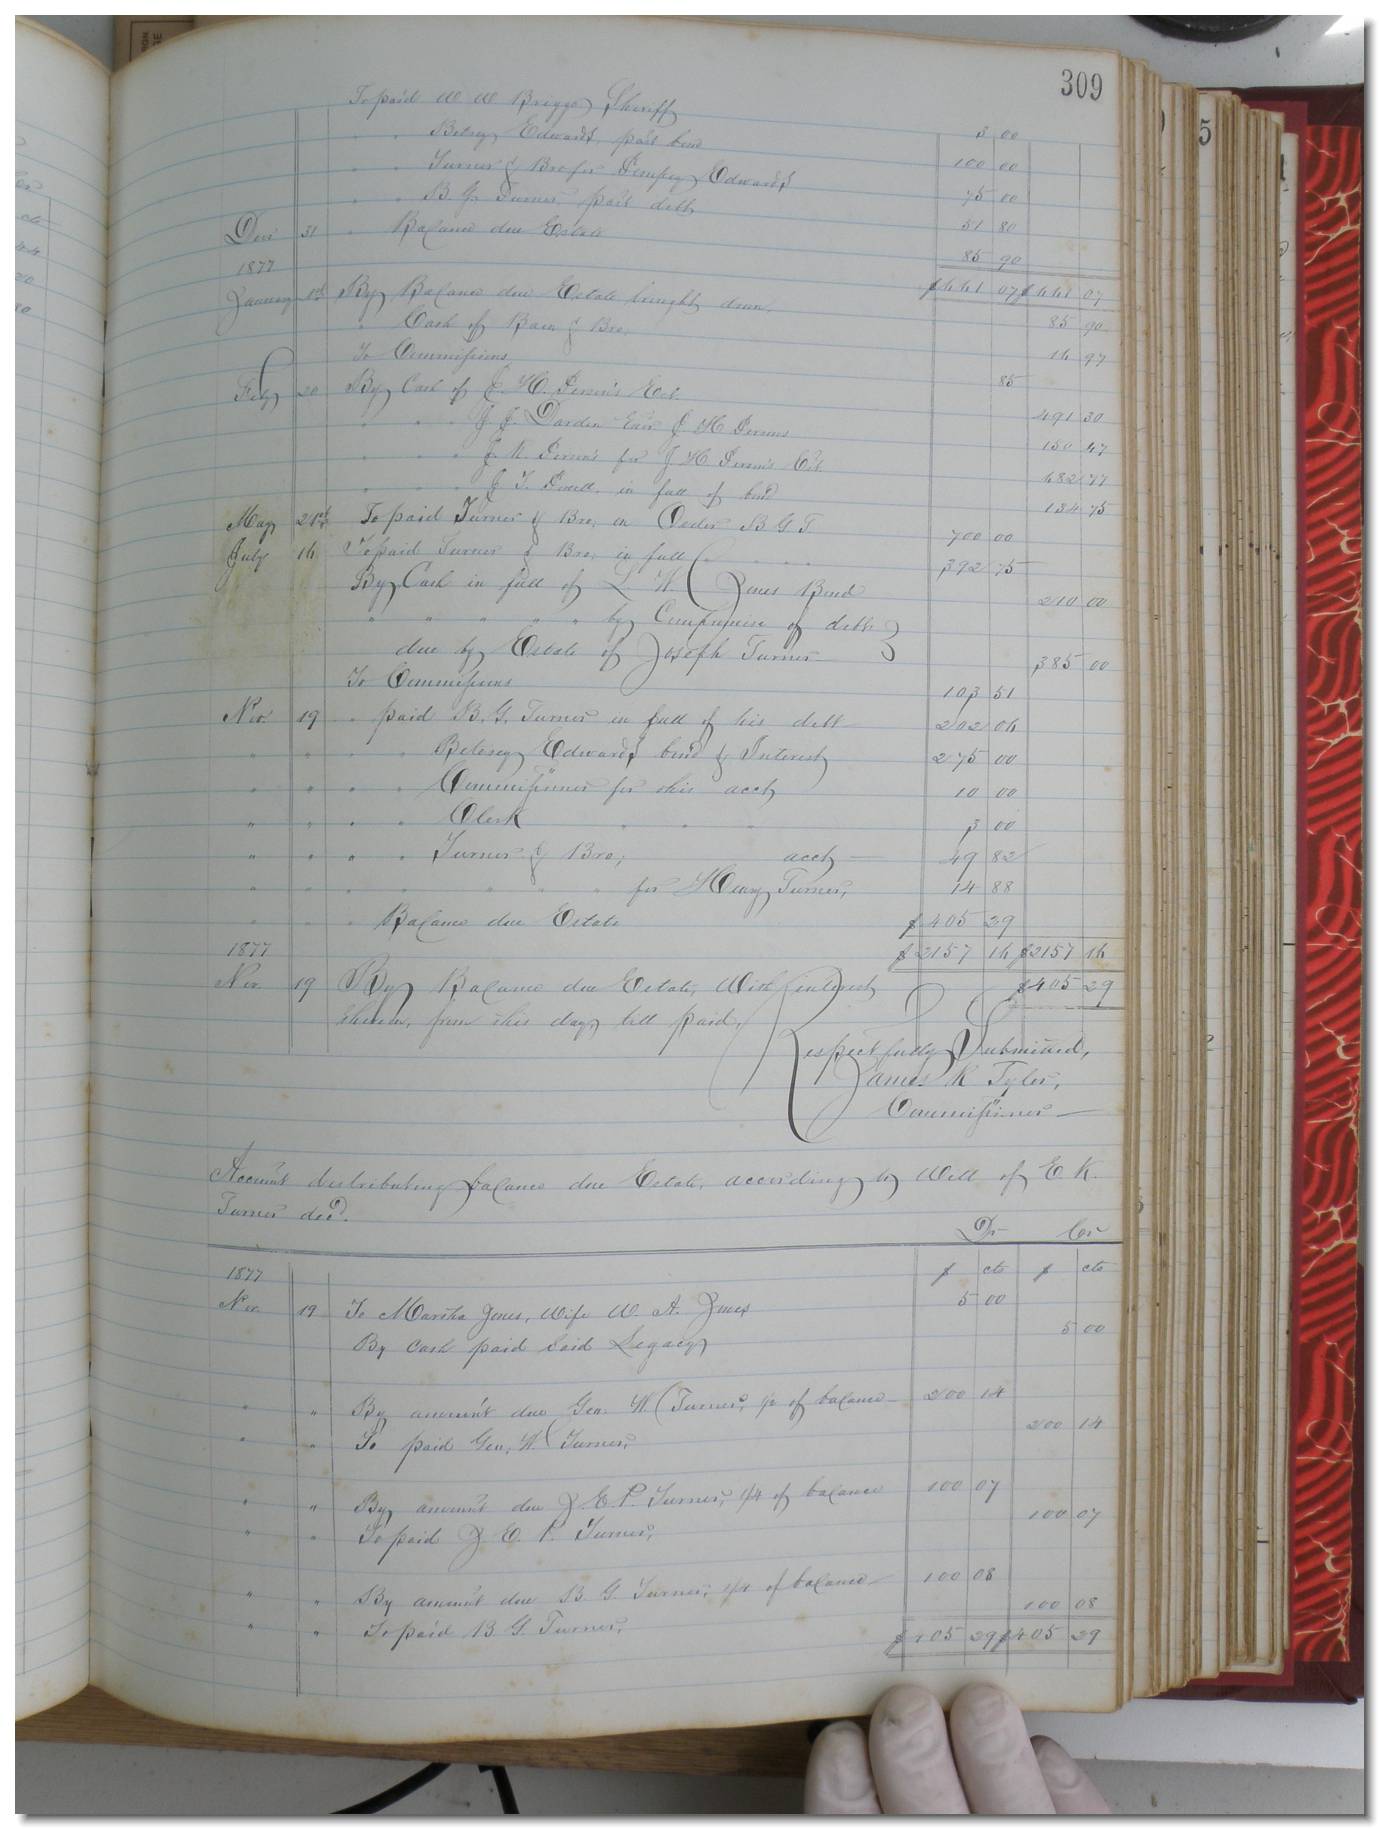 309
To paid W W Briggs, Sheriff 3 00
" " Betsey Edwards, part bond 100 00
" " Turner & Bro for Edwards 75 00
" " B. G. Turner, part debt 51 80
Dec 31 " Balance due Estate 85 90
$441 07 $441 07
1877
January 1st By Balance due Estate brought down 85 90
" Cash of & Bro. 14 97
To Commissions 85
Feby 20 By Cash of J. H. 491 30
" " " J. J. Darden J H 150 47
" " " J. K. for J H 482 77
" " " J T in full of bond 134 75
May 21st To paid Turner & Bro, on Order B G T 700 00
July 14 To paid Turner & Bro, in full 392 75
By Cash in full of L W Jones Bond 210 00
" " " " " by Compromise of debt
due by Estate of Joseph Turner 385 00
To Commissions 103 51
Nov 19 " paid B. G. Turner in full of his debt 202 04
" " " " Betsey Edwards bond & Interest 275 00
" " " " Commissioner for this acct 10 00
" " " " Clerk " " " 3 00
" " " " Turner & Bro; acct 49 82
" " " " " " " for Henry Turner, 14 88
" " " Balance due Estate $405 29
1877 $2157 14 $2157 14
Nov. 19 By Balance due Estate, With interest $405 29
thereon, from this day, till paid,
Respectfully Submitted,
James R Tyler,
Commissioner
Account distributing balance due Estate, according to Will of E. K.
Turner decd.
Dr Cr
1877 $ cts $ cts
Nov. 19 To Martha Jones, Wife W. A. Jones 5 00
By Cash paid Said Legacy 5 00
" " By amount due Geo. W Turner, 1/2 of balance 200 14
" " To paid Geo, W Turner, 200 14
" " By amount due J. E. P. Turner, 1/4 of balance 100 07
" " To paid J. E. P. Turner, 100 07
" " By amount due B G Turner, 1/4 of balance 100 08
" " To paid B G Turner, 100 08
$405 29 $405 29